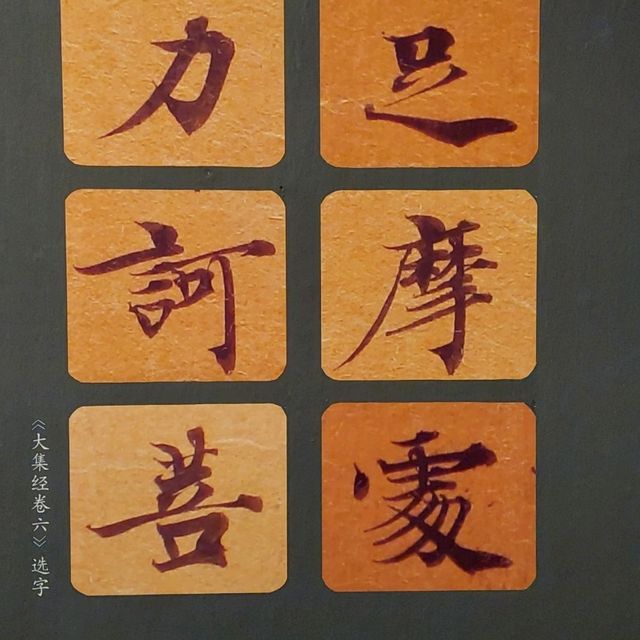 足摩處
力訶菩
《大集经卷六》选字